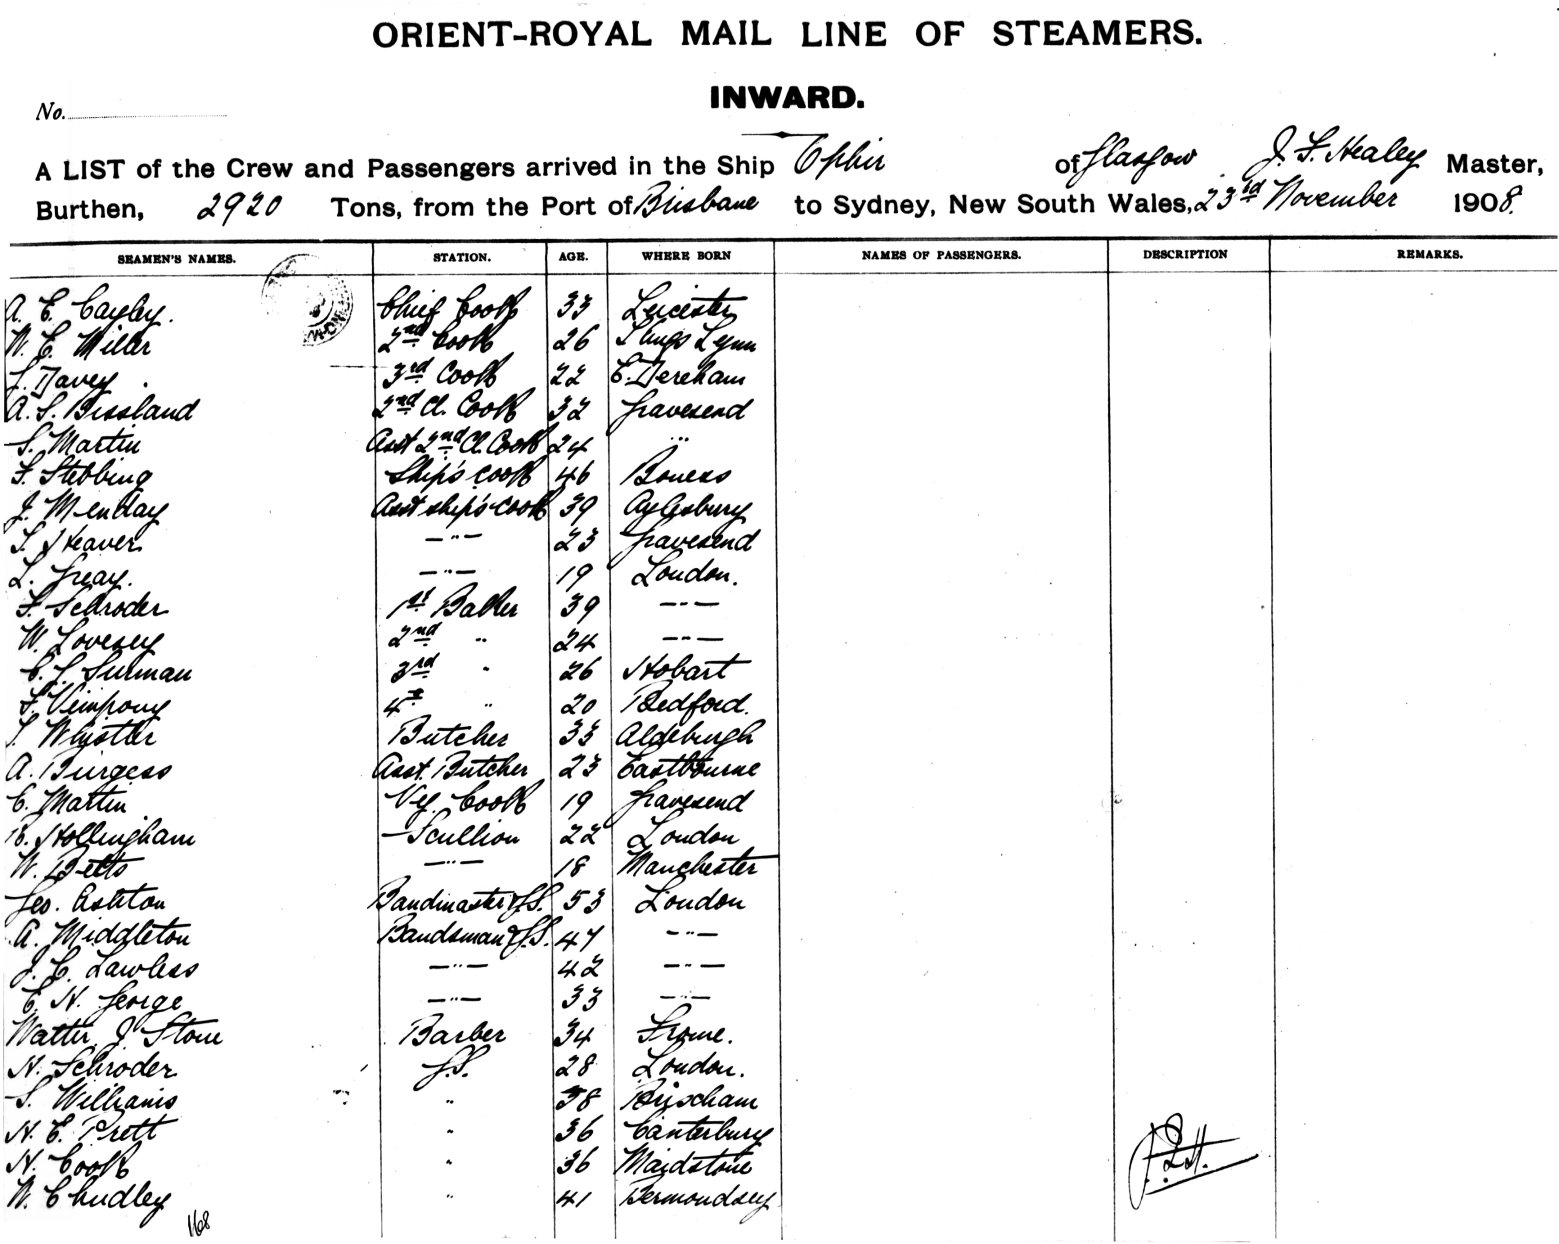 ORIENT-ROYAL MAIL LINE OF STEAMERS.
INWARD.
No.
A LIST of the Crew and Passengers arrived in the Ship Ophir of Glasgow J. F. Healey Master,
Burthen, 2920 Tons, from the Port of Brisbane to Sydney, New South Wales, 23rd November 1908.
SEAMEN'S NAMES. STATION. AGE. WHERE BORN NAMES OF PASSENGERS. DESCRIPTION REMARKS.
A. E. Cayley. Chief Cook 33 Leicester
W. E. Miller 2nd Cook 26 Kings Lynn
Davey 3rd Cook 22 E. Dereham
A. S. Bissland 2nd Cl. Cook 32 Gravesend
S. Martin Asst 2nd Cl. Cook 24 "
F. Stebbing Ship's cook 46 Boness
J. Menday Asst ship's cook 39 Aylesbury
Heaver —"— 23 Gravesend
L. Greay. —"— 19 London.
F. Schroder 1st Baker 39 —"—
W. Lovesey 2nd " 24 —"—
Surman 3rd " 26 Hobart
F. Vempony 4th " 20 Bedford.
Whistler Butcher 33 Aldeburgh
A. Burgess Asst. Butcher 23 Eastbourne
C. Martin Veg. Cook 19 Gravesend
Hollingham Scullion 22 London
W. Betts —"— 18 Manchester
Geo. Ashton Bandmaster & G.S. 53 London
A. Middleton Bandsman & G.S. 47 —"—
J. C. Lawless —"— 42 —"—
E. H. George —"— 33 —"—
Walter J Stone Barber 34 Frome.
H. Schroder G.S. 28 London.
S. Williams " 38 Brixham
H. E. Prett " 36 Canterbury
H. Cook " 36 Maidstone
W. Chudley " 41 Bermondsey
168